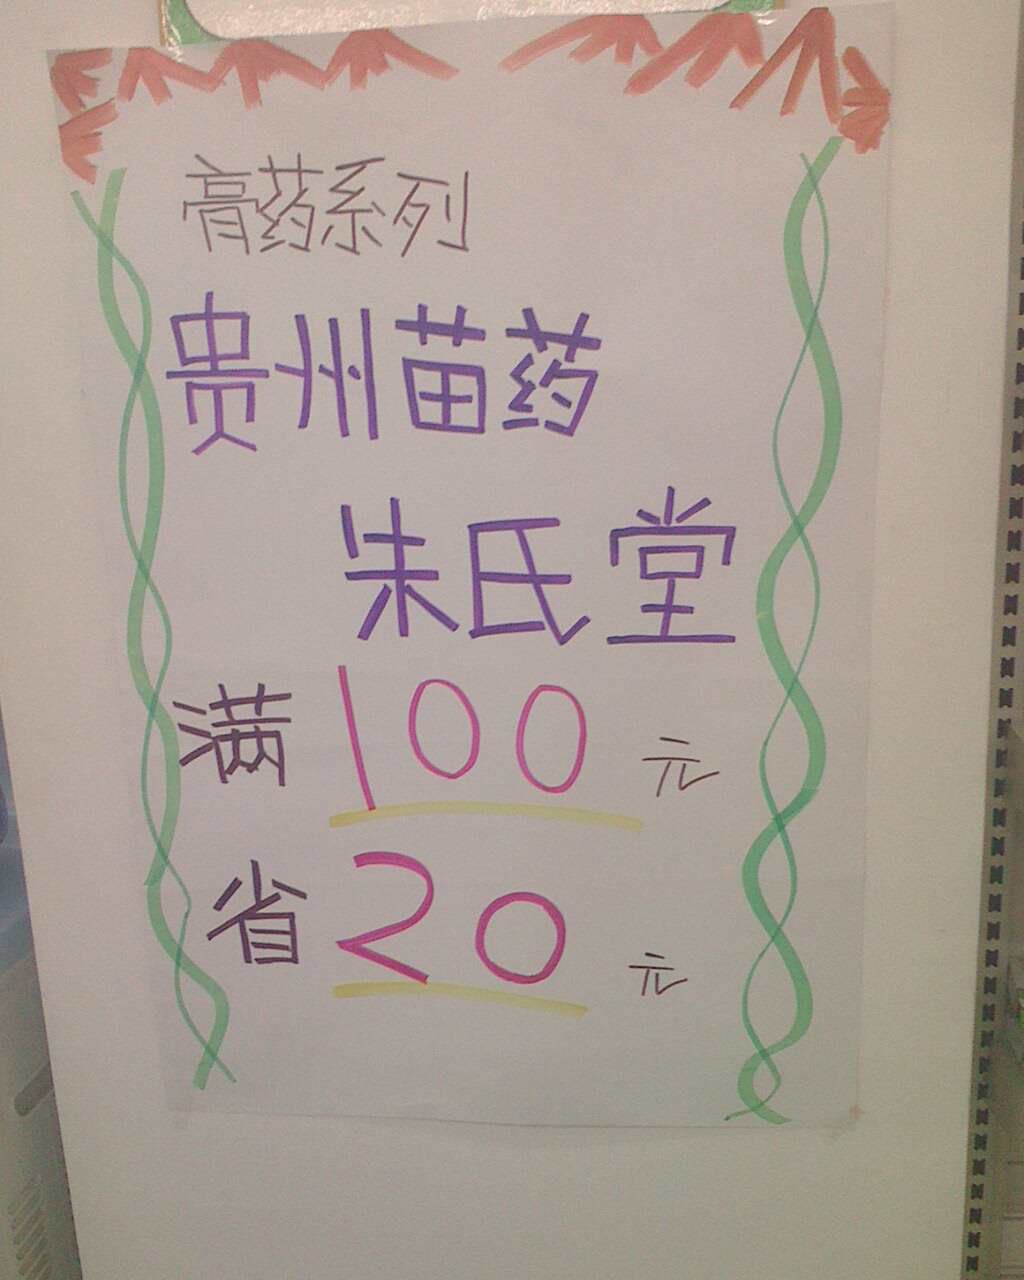 膏药系列
贵州苗药
朱氏堂
满100元
省20元